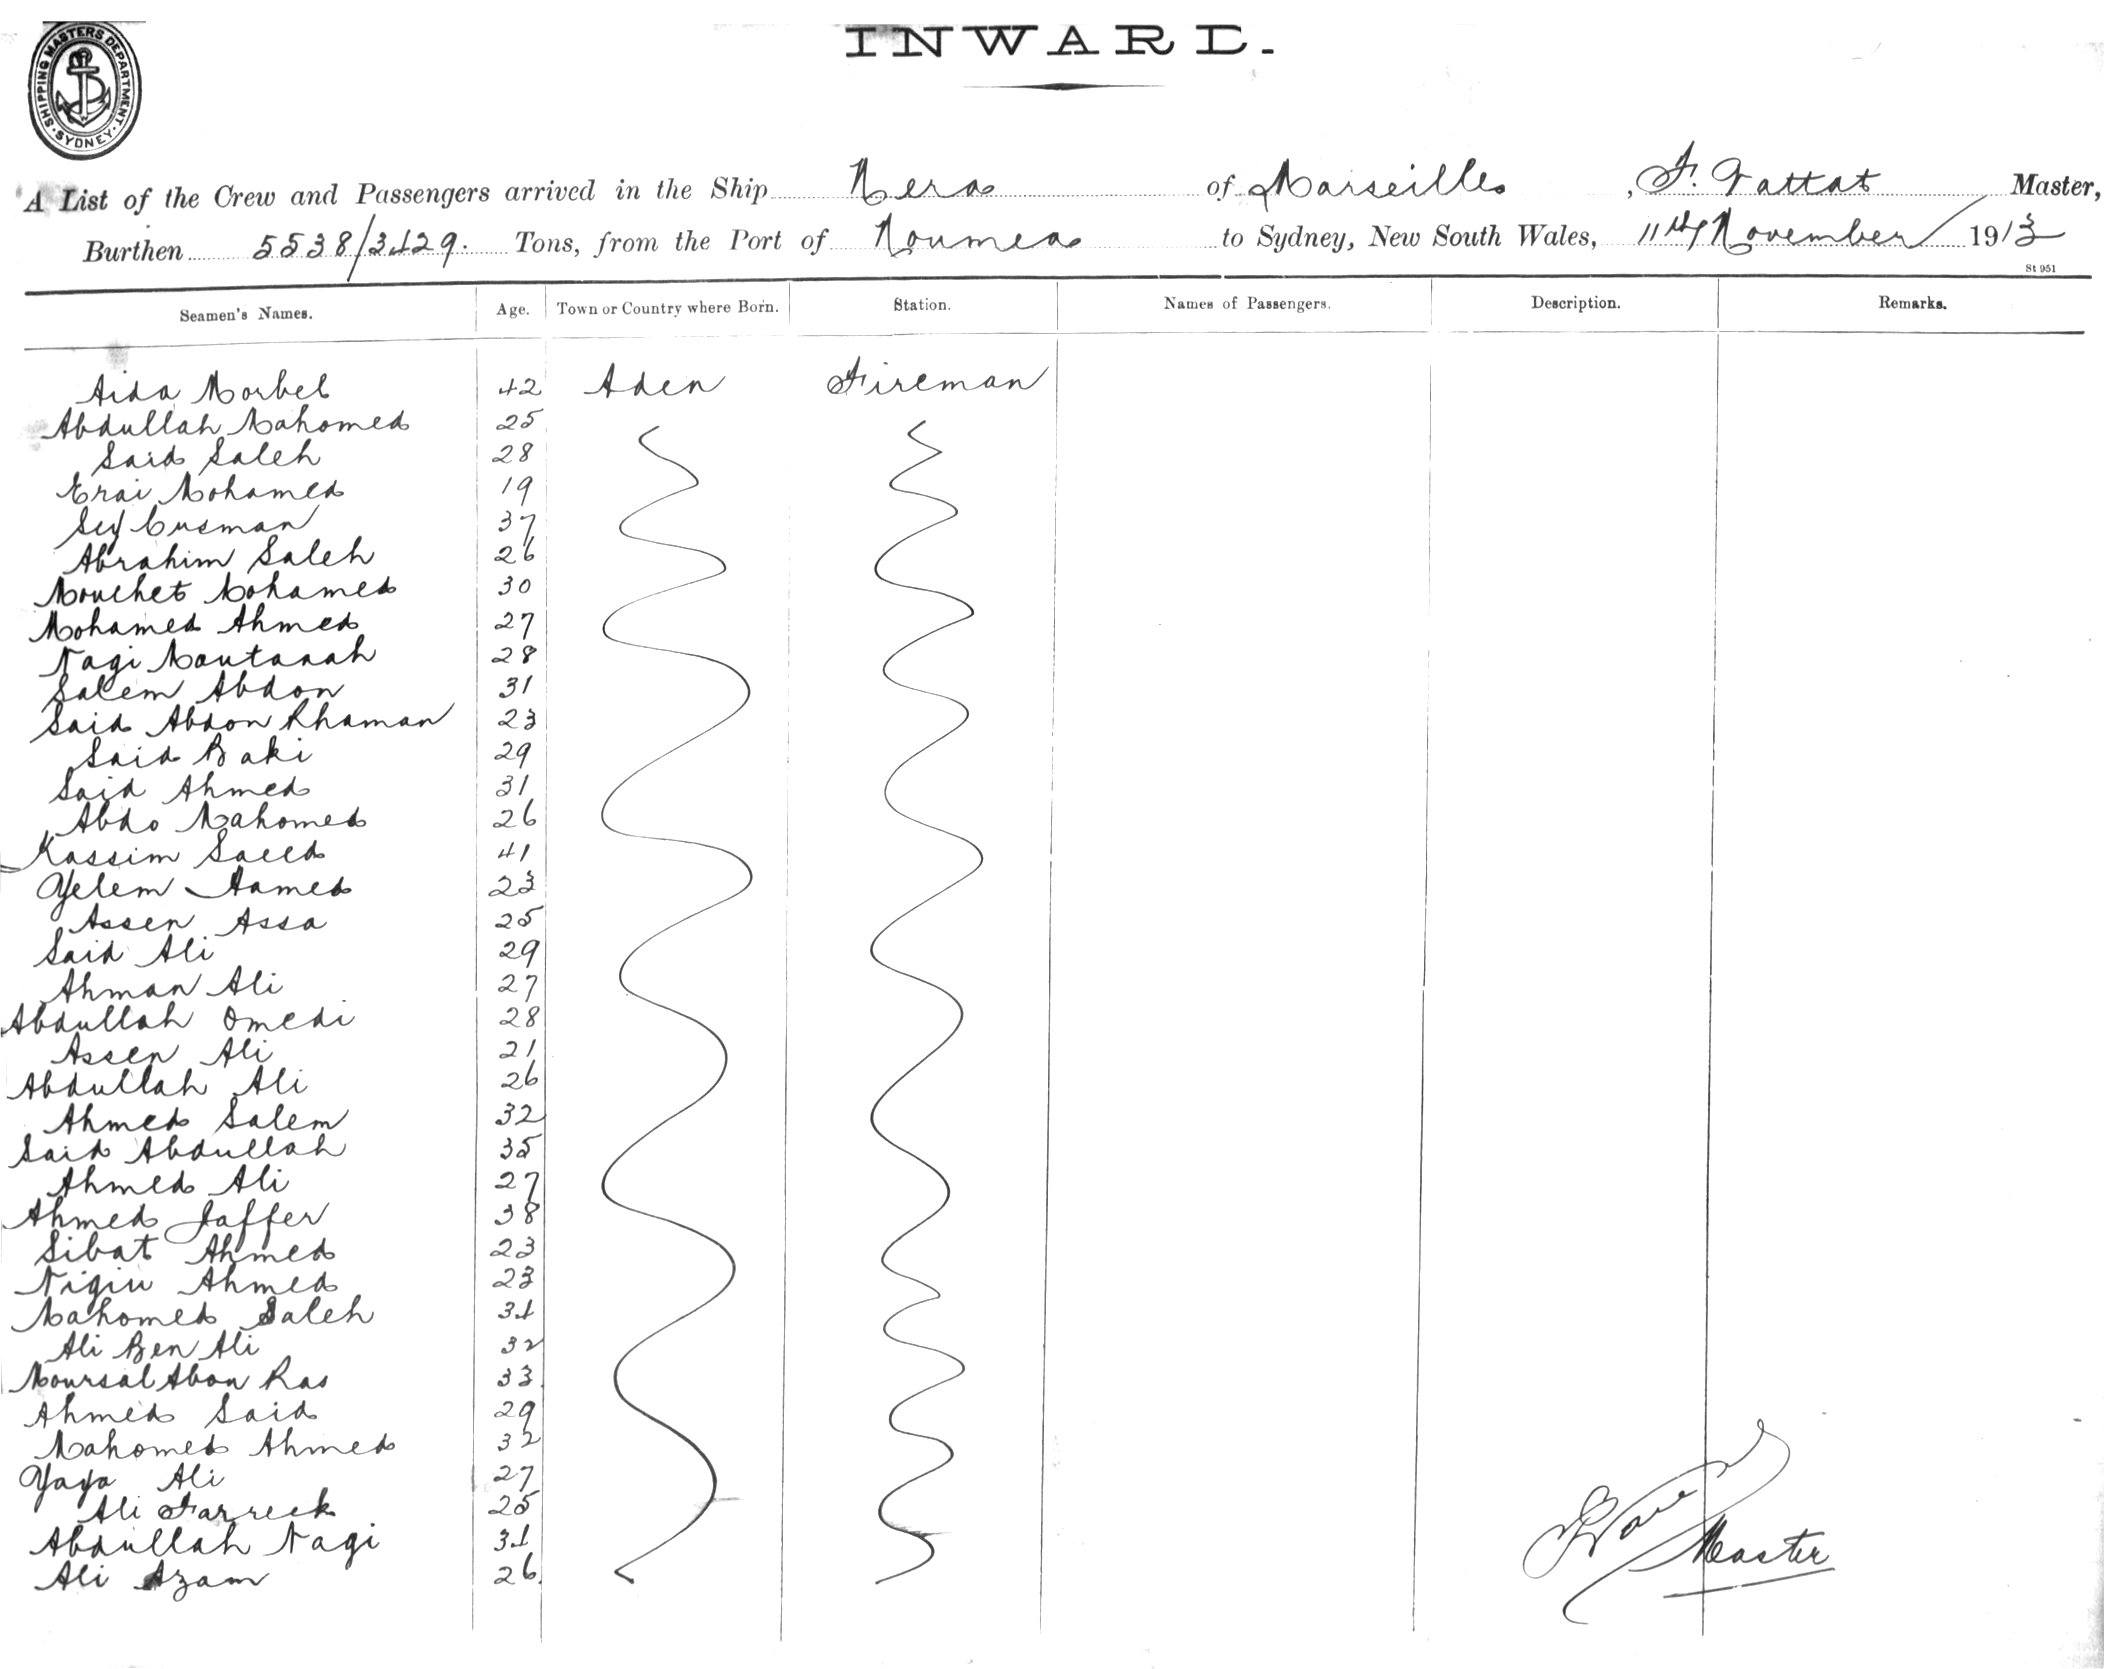 SHIPPING MASTERS DEPARTMENT. SYDNEY.
INWARD.
A List of the Crew and Passengers arrived in the Ship Nera of Marseilles, F. Master,
Burthen 5538/3429. Tons, from the Port of Noumea to Sydney, New South Wales, 11th November 1913
St 951
Seamen's Names. Age. Town or Country where Born. Station. Names of Passengers. Description. Remarks.
Aida Morbel 42 Aden Fireman
Abdullah Mahomed 25
Said Saleh 28
Erai Mohamed 19
37
Abrahim Saleh 26
Mouchet Mohamed 30
Mohamed Ahmed 27
Nagi Moutanah 28
Salem Abdon 31
Said Abdon Rhaman 23
Said Baki 29
Said Ahmed 31
Abdo Mahomed 26
Kassim Saeed 41
Yelem Hamed 23
Assen Assa 25
Said Ali 29
Ahman Ali 27
Abdullah Omedi 28
Assen Ali 21
Abdullah Ali 26
Ahmed Salem 32
Said Abdullah 35
Ahmed Ali 27
Ahmed Jaffer 38
Sibat Ahmed 23
Ahmed 23
Mahomed Saleh 34
Ali Ben Ali 32
Moursal Abou Ras 33
Ahmed Said 29
Mahomed Ahmed 32
Yaya Ali 27
Ali Farreck 25
Abdullah Nagi 34
Ali Azam 26
Master